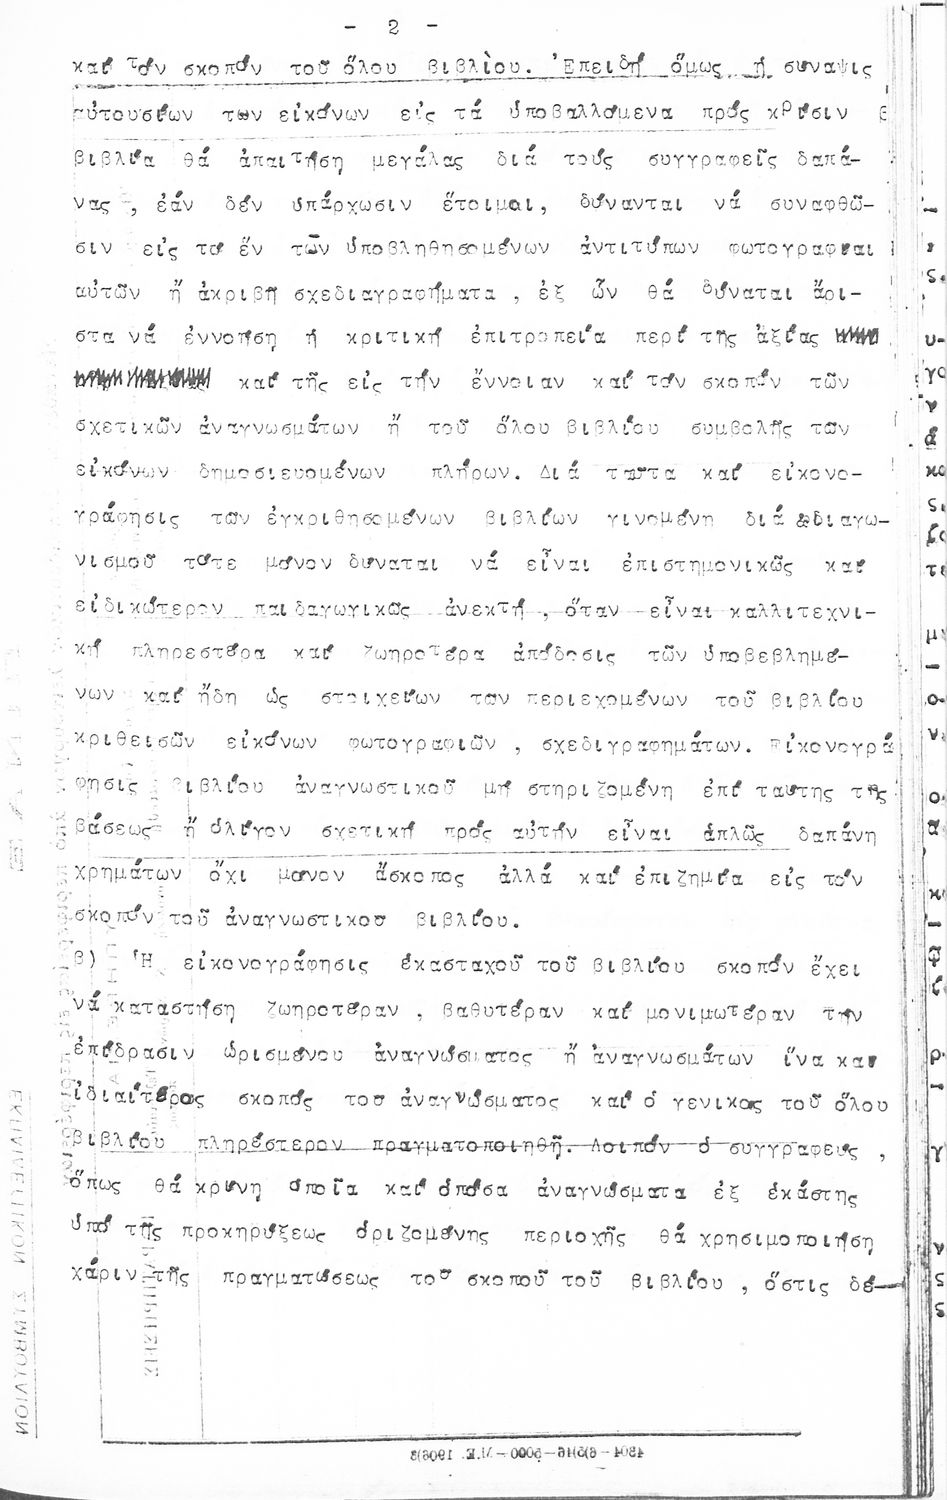 - 2 -
καί τόν σκοπόν τοῦ ὅλου βιβλίου. Ἐπειδή ὅμως ἡ συναψις
αὐτουσίων των εἰκόνων εἰς τά ὑποβαλλόμενα πρός κρίσιν β
βιβλία θά ἀπαιτήση μεγάλας διά τούς συγγραφεῖς δαπά-
νας , ἐάν δέν ὑπάρχωσιν ἕτοιμοι, δύνανται νά συναφθῶ-
σιν εἰς τό ἕν τῶν ὑποβληθησομένων ἀντιτύπων φωτογραφίαι
αὐτῶν ἤ ἀκριβῆ σχεδιαγραφήματα , ἐξ ὧν θά δύναται ἄρι-
στα νά ἐννοήση ἡ κριτική ἐπιτροπεία περί τῆς ἀξίας
καί τῆς εἰς τήν ἔννοιαν καί τόν σκοπόν τῶν
σχετικῶν ἀναγνωσμάτων ἤ τοῦ ὅλου βιβλίου συμβολῆς των
εἰκόνων δημοσιευομένων πλήρων. Διά ταῦτα καί εἰκονο-
γράφησις των ἐγκριθησομένων βιβλίων γινομένη διά διαγω-
νισμοῦ τότε μόνον δύναται νά εἶναι ἐπιστημονικῶς καί
εἰδικώτερον παιδαγωγικῶς ἀνεκτή , ὅταν εἶναι καλλιτεχνι-
κή πληρεστέρα καί ζωηροτέρα ἀπόδοσις τῶν ὑποβεβλημέ-
νων καί ἤδη ὡς στοιχείων των περιεχομένων τοῦ βιβλίου
κριθεισῶν εἰκόνων φωτογραφιῶν , σχεδιγραφημάτων. Εἰκονογρά
φησις βιβλίου ἀναγνωστικοῦ μή στηριζομένη ἐπί ταύτης τῆς
βάσεως ἤ ὀλίγον σχετική πρός αὐτήν εἶναι ἁπλῶς δαπάνη
χρημάτων ὄχι μόνον ἄσκοπος ἀλλά καί ἐπιζημία εἰς τόν
σκοπόν τοῦ ἀναγνωστικοῦ βιβλίου.
β) Ἡ εἰκονογράφησις ἑκασταχοῦ τοῦ βιβλίου σκοπόν ἔχει
νά καταστήση ζωηροτέραν , βαθυτέραν καί μονιμωτέραν τήν
ἐπίδρασιν ὡρισμένου ἀναγνώσματος ἤ ἀναγνωσμάτων ἵνα καί
ἰδιαίτερος σκοπός του ἀναγνώσματος καί ὁ γενικός τοῦ ὅλου
βιβλίου πληρέστερον πραγματοποιηθῆ. Λοιπόν ὁ συγγραφεύς ,
ὅπως θά κρίνη ὁποῖα καί ὁπόσα ἀναγνώσματα ἐξ ἑκάστης
ὑπό τῆς προκηρύξεως ὁριζομένης περιοχῆς θά χρησιμοποιήση
χάριν τῆς πραγματώσεως τοῦ σκοποῦ τοῦ βιβλίου , ὅστις δέ—